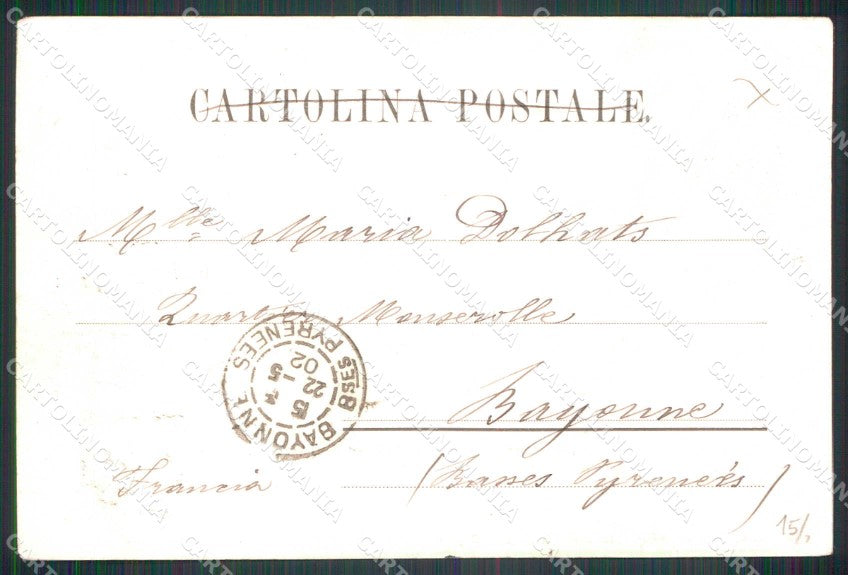 CARTOLINA POSTALE.
Mlle Maria Dolhats
Quartier Monserolle
Bayonne
Francia (Basses Pyrenées)
BAYONNE BSES PYRENEES
22 - 5
02
15/,
CARTOLINOMANIA